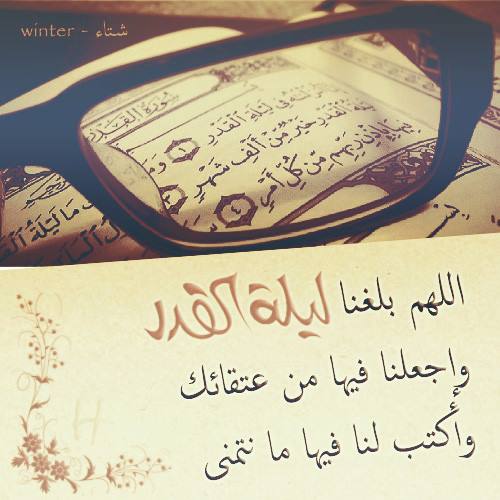 winter - شتاء
سورة القدر
لة في ليلة القدر
ليلة القدر خير من ألف شهر
فيها بإذن ربهم من كل أمر ٤
اللهم بلغنا ليلة القدر
واجعلنا فيها من عتقائك
وأكتب لنا فيها ما نتمنى